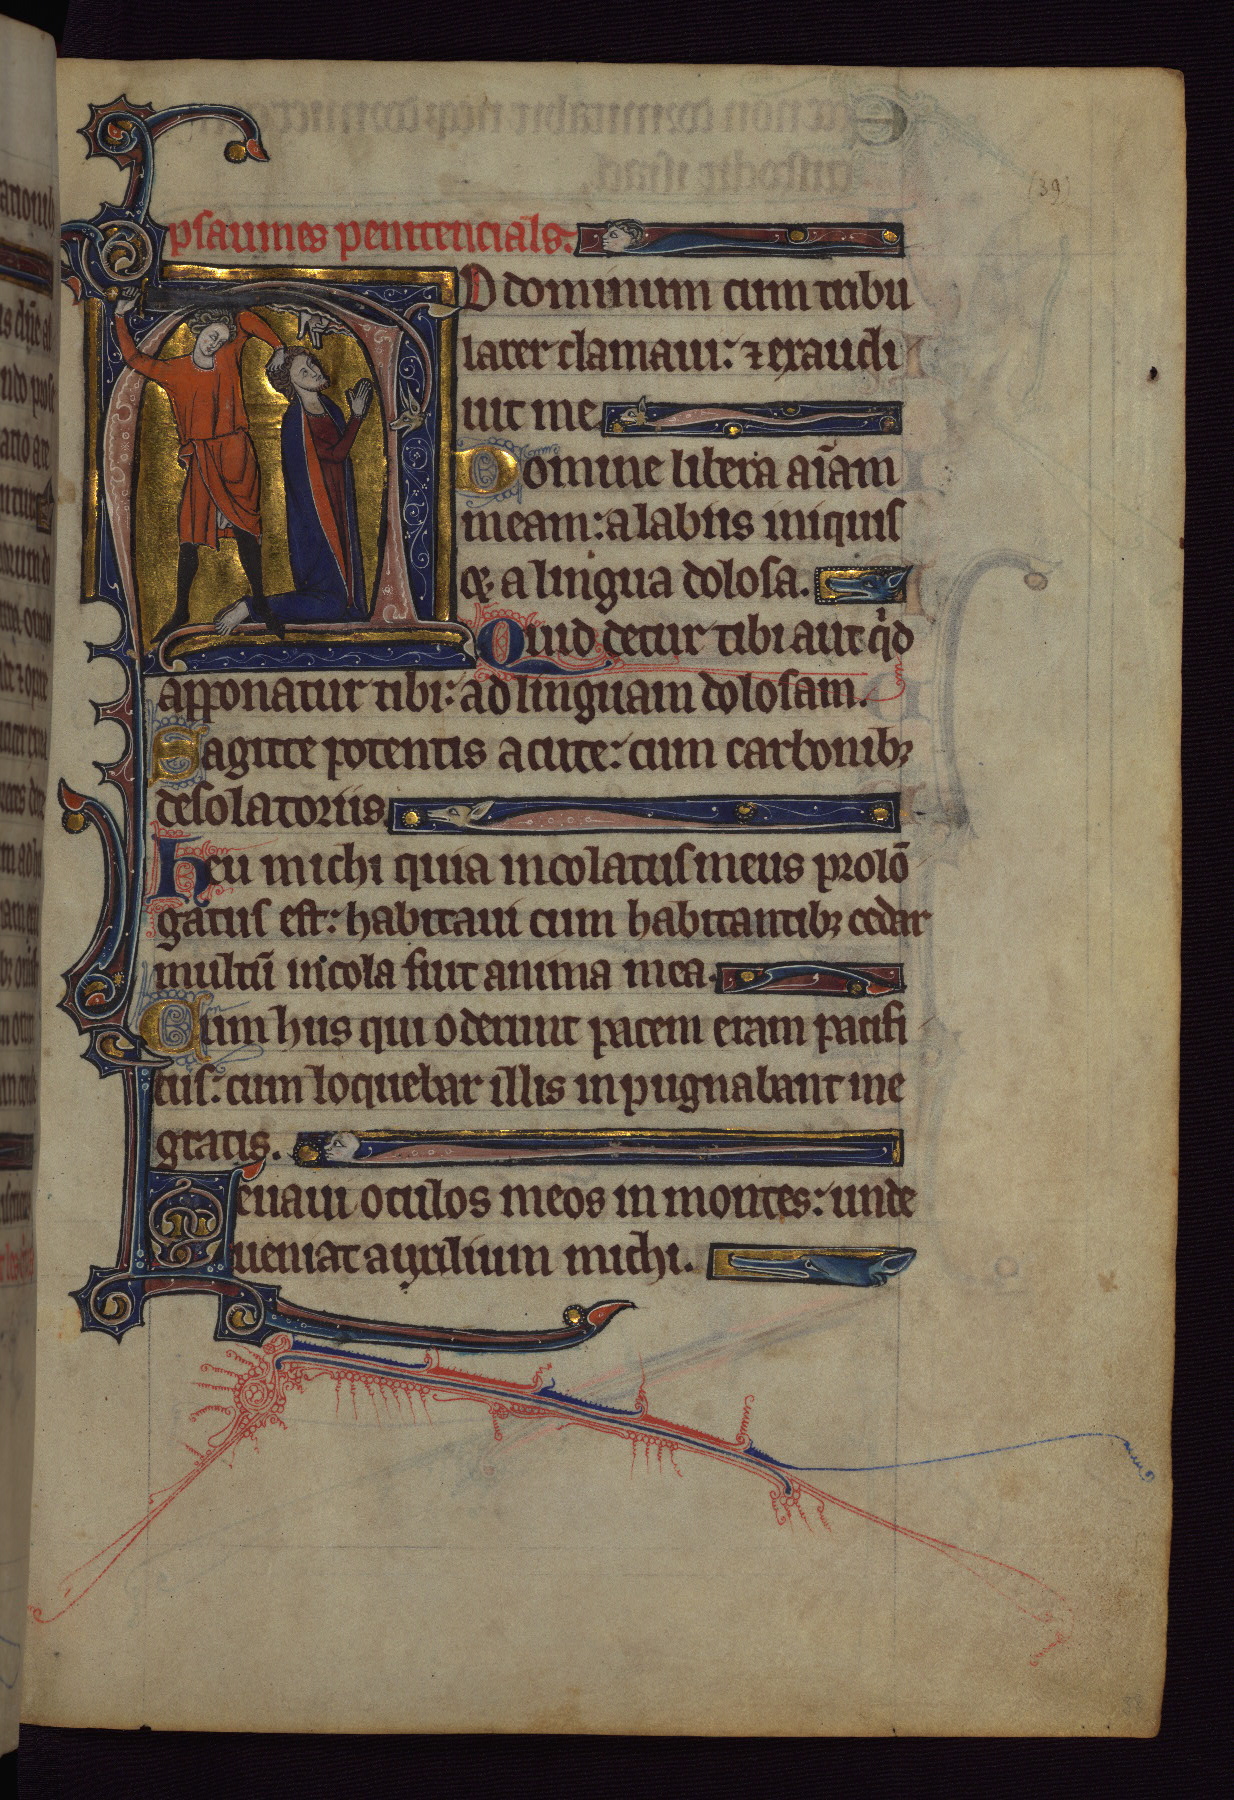 (39)
psaumes penitencials.
AD dominum cum tribu
larer clamaui: ⁊ exaudi
uit me
Domine libera aīam
meam: a labiis iniquis
⁊ a lingua dolosa.
Quid detur tibi aut qͥd
apponatur tibi: ad linguam dolosam.
Sagitte potentis acute: cum carbonibꝫ
desolatoriis
Heu michi quia incolatus meus prolō
gatus est: habitaui cum habitantibꝫ cedar
multū incola fuit anima mea.
Cum hiis qui oderunt pacem eram pacifi
cus: cum loquebar illis inpugnabant me
gratis.
Leuaui oculos meos in montes: unde
ueniat auxilium michi.